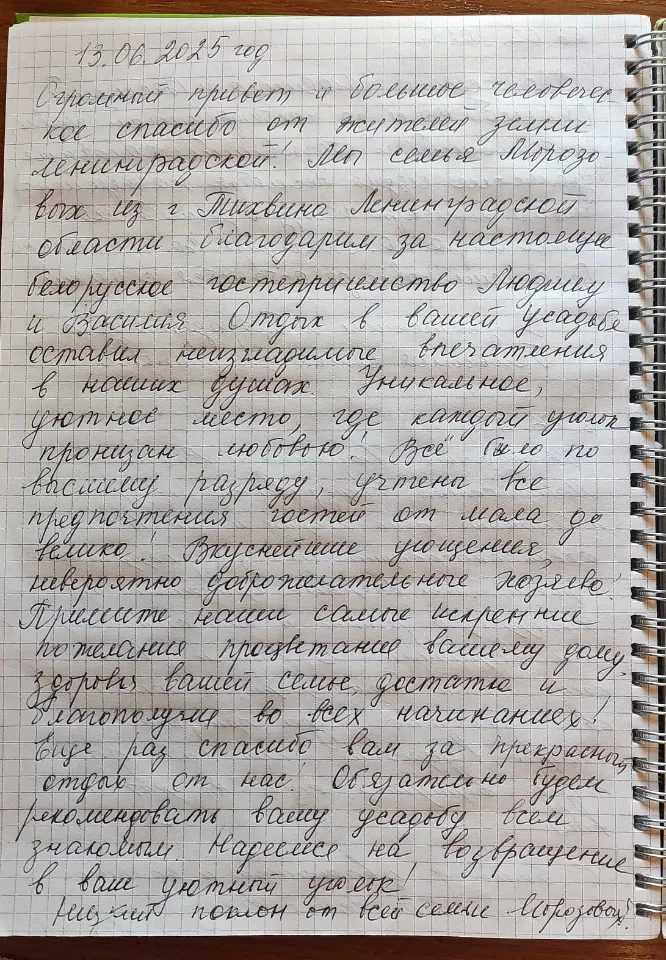 13.06.2025 год
Огромный привет и большое человечес-
кое спасибо от жителей земли
ленинградской! Мы семья Морозо-
вых из г Тихвина Ленинградской
области благодарим за настоящее
белорусское гостеприемство Людмилу
и Василия Отдых в вашей усадьбе
оставил неизгладимые впечатления
в наших душах Уникальное,
уютное место, где каждый уголок
пронизан любовью! Всё было по
высшему разряду, учтены все
предпочтения гостей от мала до
велико! Вкуснейшие угощения,
невероятно доброжелательные хозяева!
Примите наши самые искренние
пожелания процветания вашему дому,
здоровья вашей семье, достатка и
благополучия во всех начинаниях!
Еще раз спасибо вам за прекрасный
отдых от нас! Обязательно будем
рекомендовать вашу усадьбу всем
знакомым. Надеемся на возвращение
в ваш уютный уголок!
Низкий поклон от всей семьи Морозовых!